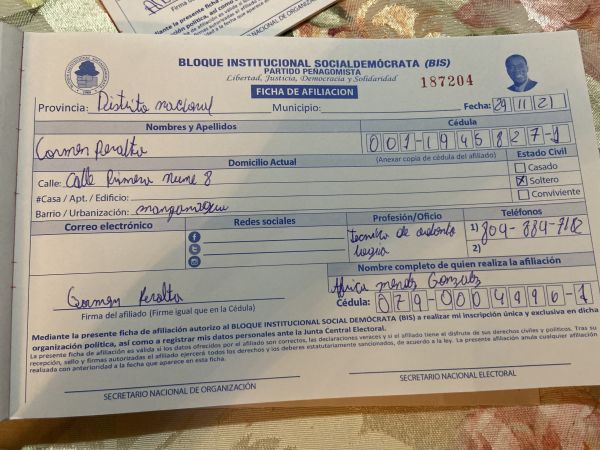 organización política, así como a
Firma del afiliado
Mediante la presente ficha de afiliación
SECRETARIO NACIONAL DE ORGANIZACIÓN
BLOQUE INSTITUCIONAL SOCIALDEMÓCRATA (BIS)
PARTIDO PEÑAGOMISTA
Libertad, Justicia, Democracia y Solidaridad
187204
FICHA DE AFILIACION
Provincia: Distrito nacional Municipio: Fecha: 29 11 21
Nombres y Apellidos Cédula
Carmen Peralta 001-1945827-1
Domicilio Actual (Anexar copia de cédula del afiliado) Estado Civil
Calle: Calle Primera nume 8 Casado
#Casa / Apt. / Edificio: Soltero
Barrio / Urbanización: manganagua Conviviente
Correo electrónico Redes sociales Profesión/Oficio Teléfonos
Tecnico de 1) 809-884-7182
2)
Nombre completo de quien realiza la afiliación
Carmen Peralta Africa mendez Gonzalez
Firma del afiliado (Firme igual que en la Cédula) Cédula: 079-0004996-1
Mediante la presente ficha de afiliación autorizo al BLOQUE INSTITUCIONAL SOCIAL DEMÓCRATA (BIS) a realizar mi inscripción única y exclusiva en dicha
organización política, así como a registrar mis datos personales ante la Junta Central Electoral.
La presente ficha de afiliación es valida si los datos ofrecidos por el afiliado son correctos, las declaraciones veraces y si el afiliado tiene el disfrute de sus derechos civiles y políticos. Tras su
recepción, sello y firmas autorizadas el afiliado ejercerá todos los derechos y los deberes estatutariamente sancionados, de acuerdo a la ley. La presente afiliación anula cualquier afiliación
realizada con anterioridad a la fecha que aparece en esta ficha.
SECRETARIO NACIONAL DE ORGANIZACIÓN SECRETARIO NACIONAL ELECTORAL